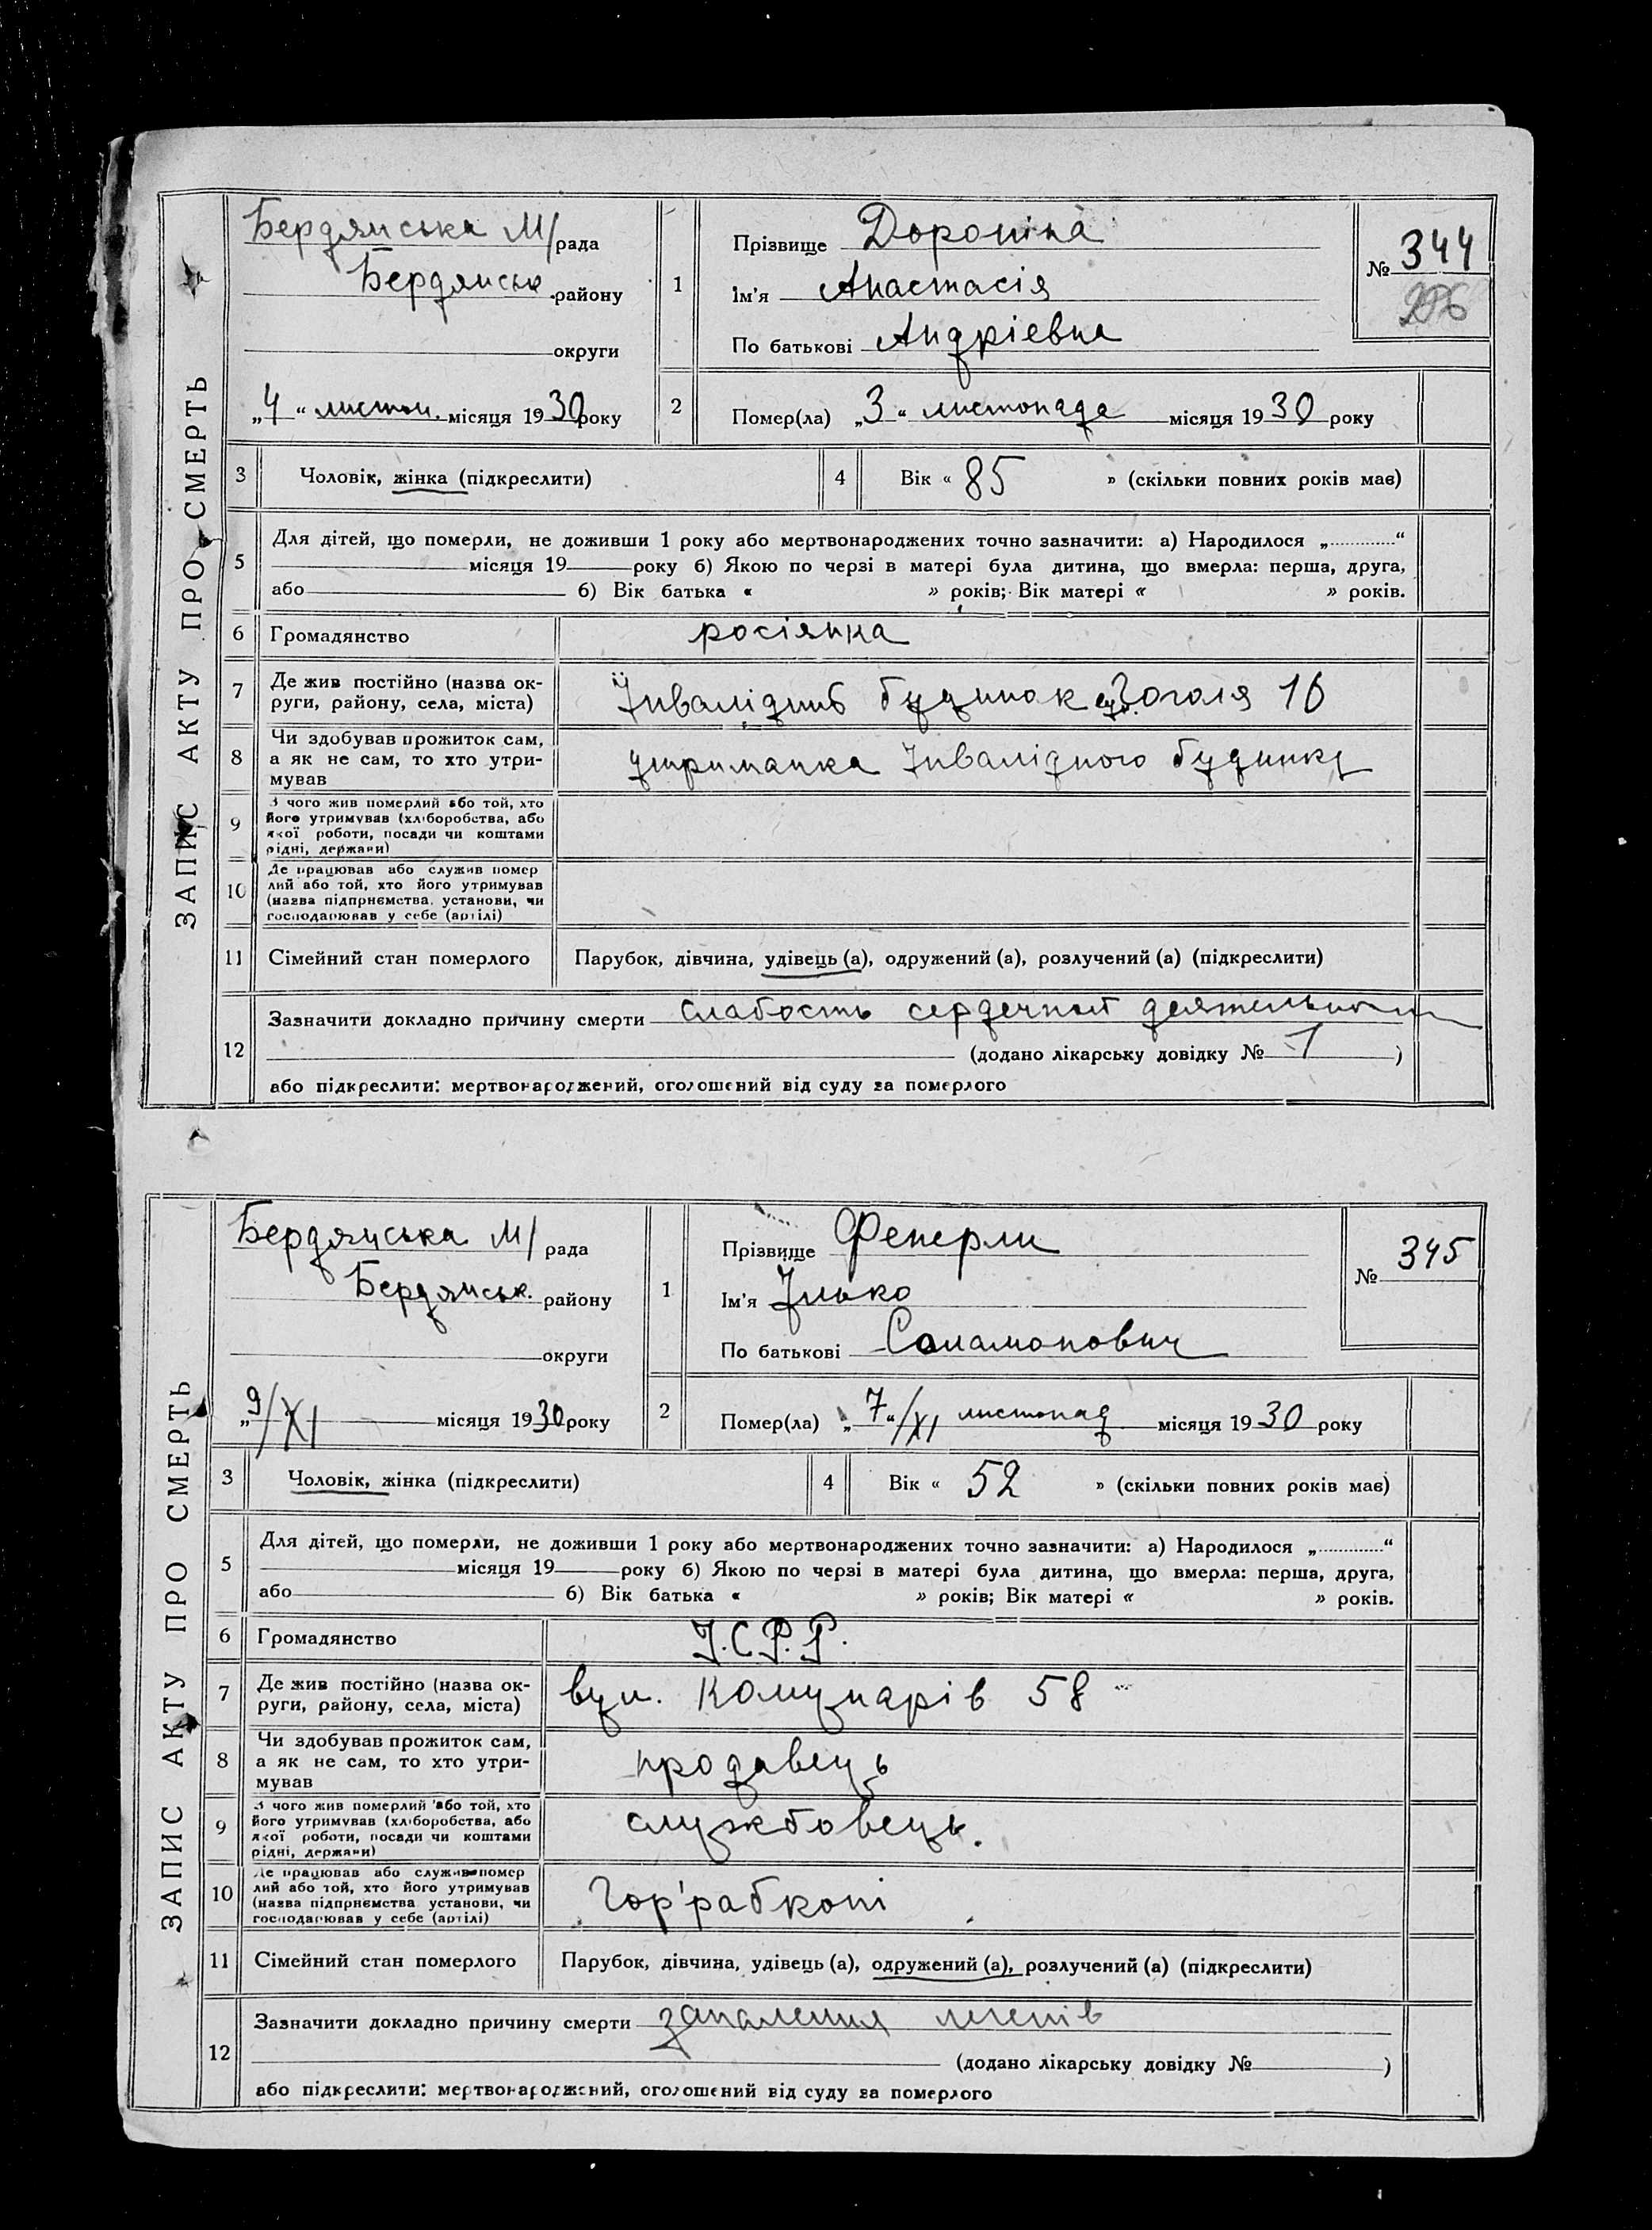 ЗАПИС АКТУ ПРО СМЕРТЬ
Бердянська М/рада
Бердянськ. району
округи
„4“ листоп. місяця 1930 року
1
Прізвище Дороніна
Ім'я Анастасія
По батькові Андріевна
№ 344
286
2
Помер(ла) „3“ листопада місяця 1930 року
3 Чоловік, жінка (підкреслити)
4 Вік « 85 » (скільки повних років має)
5 Для дітей, що померли, не доживши 1 року або мертвонароджених точно зазначити: а) Народилося „............“
місяця 19 року б) Якою по черзі в матері була дитина, що вмерла: перша, друга,
або б) Вік батька « » років; Вік матері « » років.
6 Громадянство росіянка
7 Де жив постійно (назва ок-
руги, району, села, міста) Інвалідний будинок Гоголя 10
8 Чи здобував прожиток сам,
а як не сам, то хто утри-
мував утриманка Інвалідного будинку
9 З чого жив померлий або той, хто
його утримував (хліборобства, або
якої роботи, посади чи коштами
рідні, держави)
10 Де працював або служив помер
лий або той, хто його утримував
(назва підприємства, установи, чи
господарював у себе (артілі)
11 Сімейний стан померлого Парубок, дівчина, удівець (а), одружений (а), розлучений (а) (підкреслити)
12 Зазначити докладно причину смерти слабость сердечной деятельности
(додано лікарську довідку № 1 )
або підкреслити: мертвонароджений, оголошений від суду за померлого
ЗАПИС АКТУ ПРО СМЕРТЬ
Бердянська М/ рада
Бердянськ. району
округи
„9/XI місяця 1930 року
1
Прізвище Фенерли
Ім'я Ілько
По батькові Соламонович
№ 345
2
Помер(ла) „7“/XI листопад місяця 1930 року
3 Чоловік, жінка (підкреслити)
4 Вік « 52 » (скільки повних років має)
5 Для дітей, що померли, не доживши 1 року або мертвонароджених точно зазначити: а) Народилося „............“
місяця 19 року б) Якою по черзі в матері була дитина, що вмерла: перша, друга,
або б) Вік батька « » років; Вік матері « » років.
6 Громадянство У.С.Р.Р.
7 Де жив постійно (назва ок-
руги, району, села, міста) вул. Комунарів 58
8 Чи здобував прожиток сам,
а як не сам, то хто утри-
мував продавець
9 З чого жив померлий або той, хто
його утримував (хліборобства, або
якої роботи, посади чи коштами
рідні, держави) службовець.
10 Де працював або служив помер
лий або той, хто його утримував
(назва підприємства установи, чи
господарював у себе (артілі) Гор'рабкопі
11 Сімейний стан померлого Парубок, дівчина, удівець (а), одружений (а), розлучений (а) (підкреслити)
12 Зазначити докладно причину смерти запалення легенів
(додано лікарську довідку № )
або підкреслити: мертвонароджений, оголошений від суду за померлого